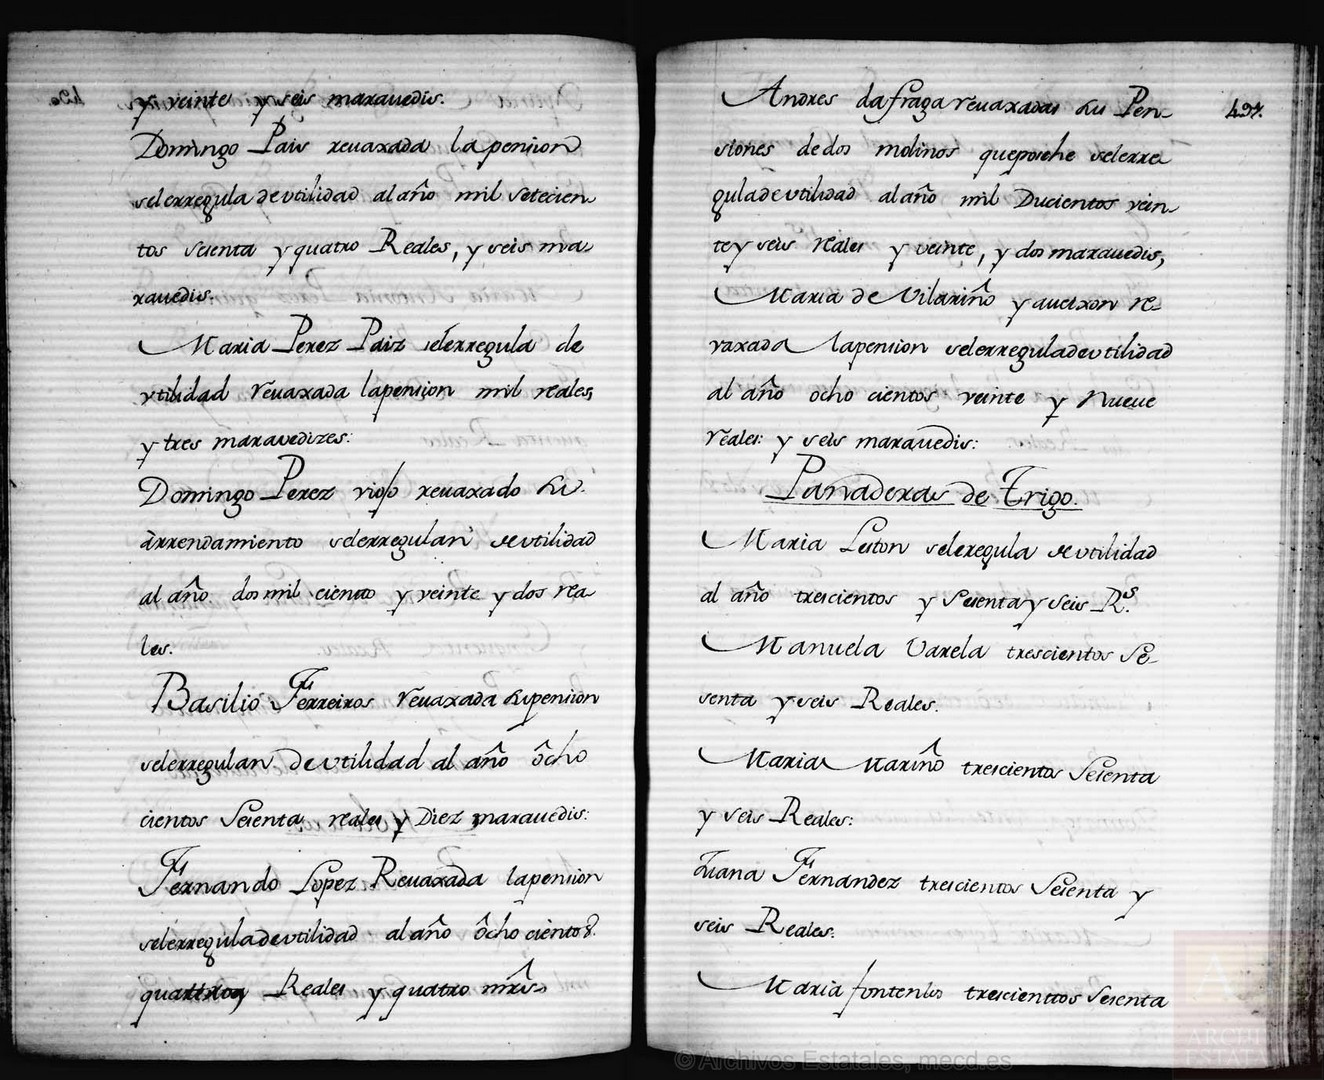 y veinte y seis maravedis.
Domingo Pais revaxada la pension
selerregula de utilidad al año mil setecien
tos sesenta y quatro Reales, y seis ma
ravedis.
Maria Perez Paiz selerregula de
utilidad revaxada la pension mil reales
y tres maravedizes:
Domingo Perez viojo revaxado su
arrendamiento selerregulan de utilidad
al año dos mil ciento y veinte y dos rea
les.
Basilio Ferreiros revaxada su pension
selerregulan de utilidad al año ocho
cientos sesenta reales y Diez maravedis:
Fernando Lopez Revaxada la pension
selerregula de utilidad al año ocho cientos
Reales y quatro mrs
Andres da fraga revaxadas su Pen
siones de dos molinos que posehe selerre
gula de utilidad al año mil Ducientos vein
te y seis reales y veinte, y dos maravedis,
Maria de Vilariño y auction re
vaxada la pension selerregula de utilidad
al año ocho cientos veinte y Nueve
reales: y seis maravedis:
Panaderas de Trigo.
Maria Leston seleregula de utilidad
al año trescientos y Sesenta y seis Rs.
Manuela Varela trescientos Se
senta y seis Reales.
Maria Mariño trescientos Sesenta
y seis Reales:
Juana Fernandez trescientos Sesenta y
seis Reales.
Maria fontenlos trescientos Sesenta
497.
© Archivos Estatales, mecd.es